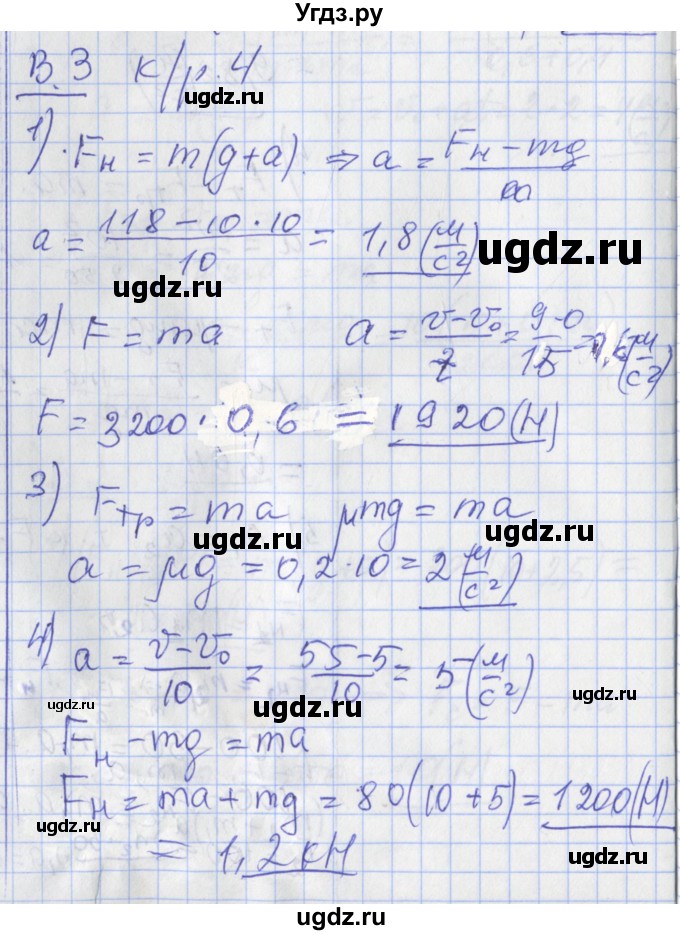 Угдз.ру
В.3 к/р.4
ugdz.ru
1). Fн = m(g+a). ⇒ a = (Fн − mg)/m
a = (118 − 10·10)/10 = 1,8 (м/с²)
ugdz.ru ugdz.ru
2) F = ma a = (v−v₀)/t = (9−0)/15 = 0,6 (м/с²)
F = 3200 · 0,6 = 1920 (Н)
ugdz.ru
3) Fтр = ma μmg = ma
ugdz.ru ugdz.ru
a = μg = 0,2·10 = 2 (м/с²)
4) a = (v−v₀)/10 = (55−5)/10 = 5 (м/с²)
ugdz.ru ugdz.ru ugdz.ru
Fн − mg = ma
ugdz.ru
Fн = ma + mg = 80(10+5) = 1200 (Н)
ugdz.ru ugdz.ru
= 1,2 кН
ugdz.ru
ugdz.ru